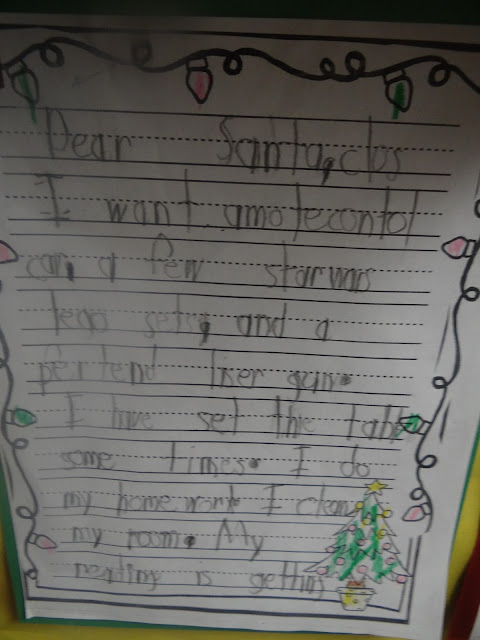 Dear Santa, clos
I want amotecontol
car, a few starwars
lego sets, and a
pertend liser gun.
I have set the table
some times. I do
my home work I clean
my room. My
reading is getting